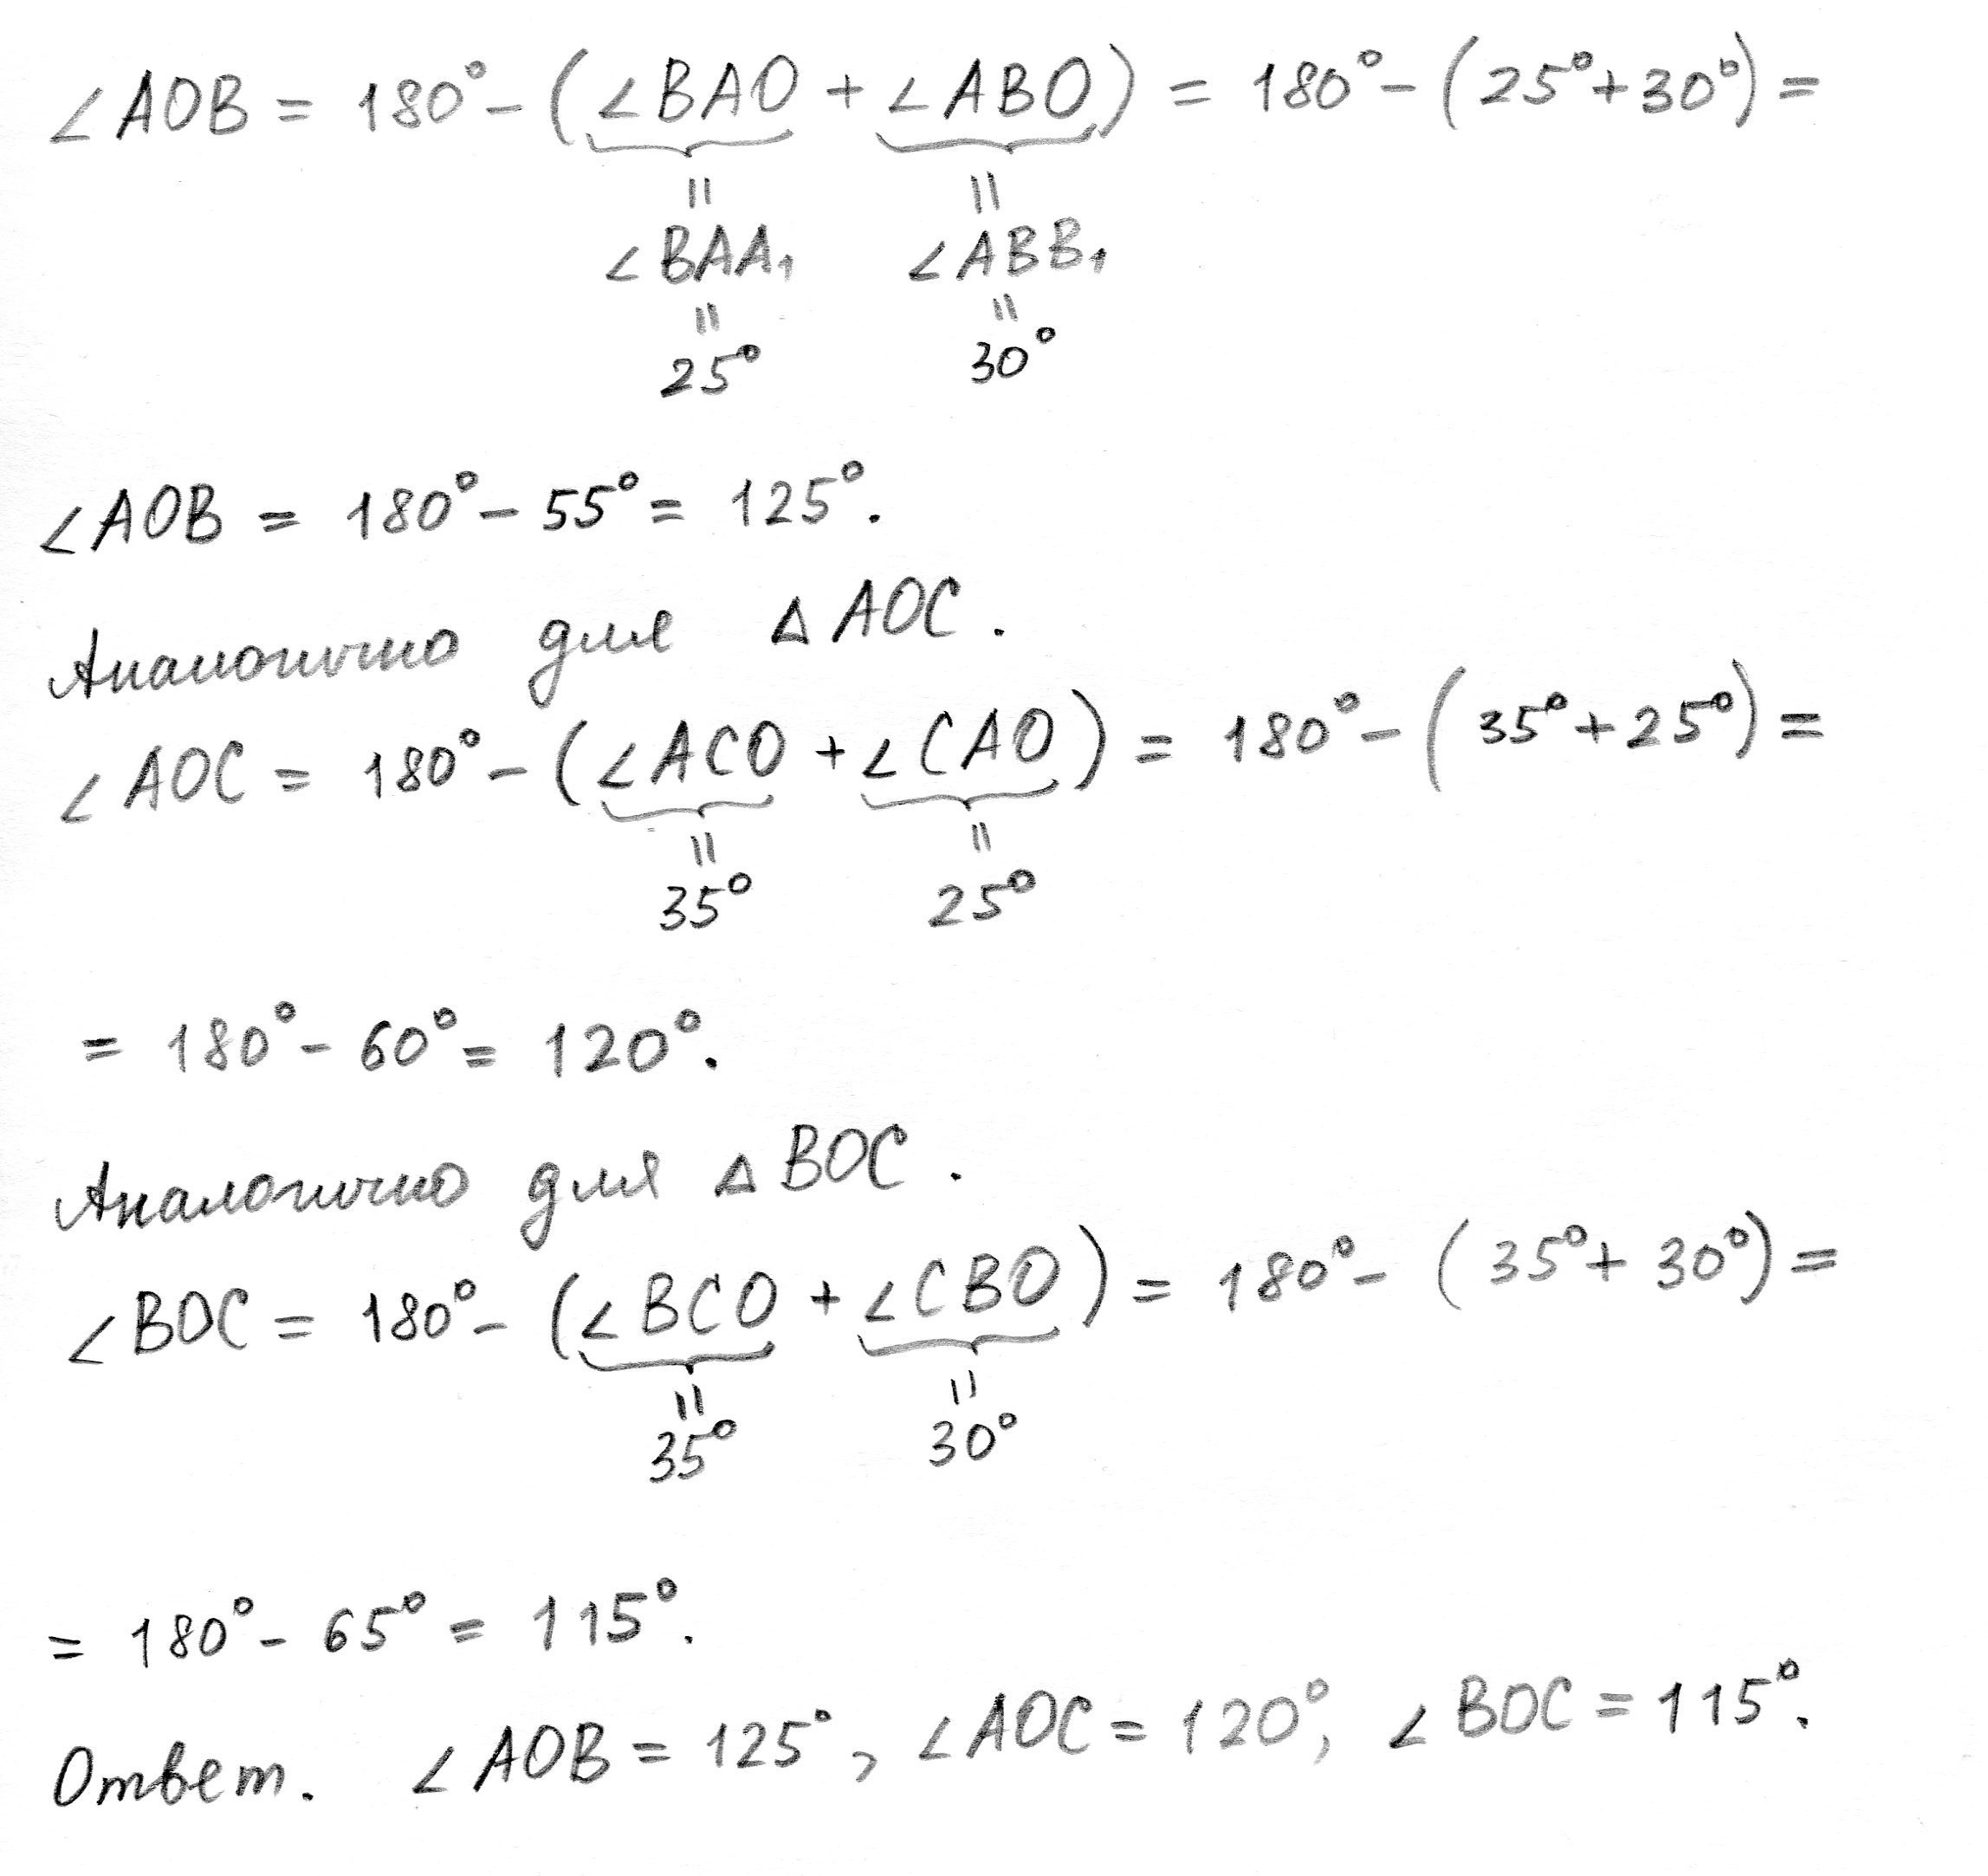 ∠AOB = 180° - (∠BAO + ∠ABO) = 180° - (25° + 30°) =
= =
∠BAA₁ ∠ABB₁
= =
25° 30°
∠AOB = 180° - 55° = 125°.
Аналогично для △AOC.
∠AOC = 180° - (∠ACO + ∠CAO) = 180° - (35° + 25°) =
= =
35° 25°
= 180° - 60° = 120°.
Аналогично для △BOC.
∠BOC = 180° - (∠BCO + ∠CBO) = 180° - (35° + 30°) =
= =
35° 30°
= 180° - 65° = 115°.
Ответ. ∠AOB = 125°, ∠AOC = 120°, ∠BOC = 115°.